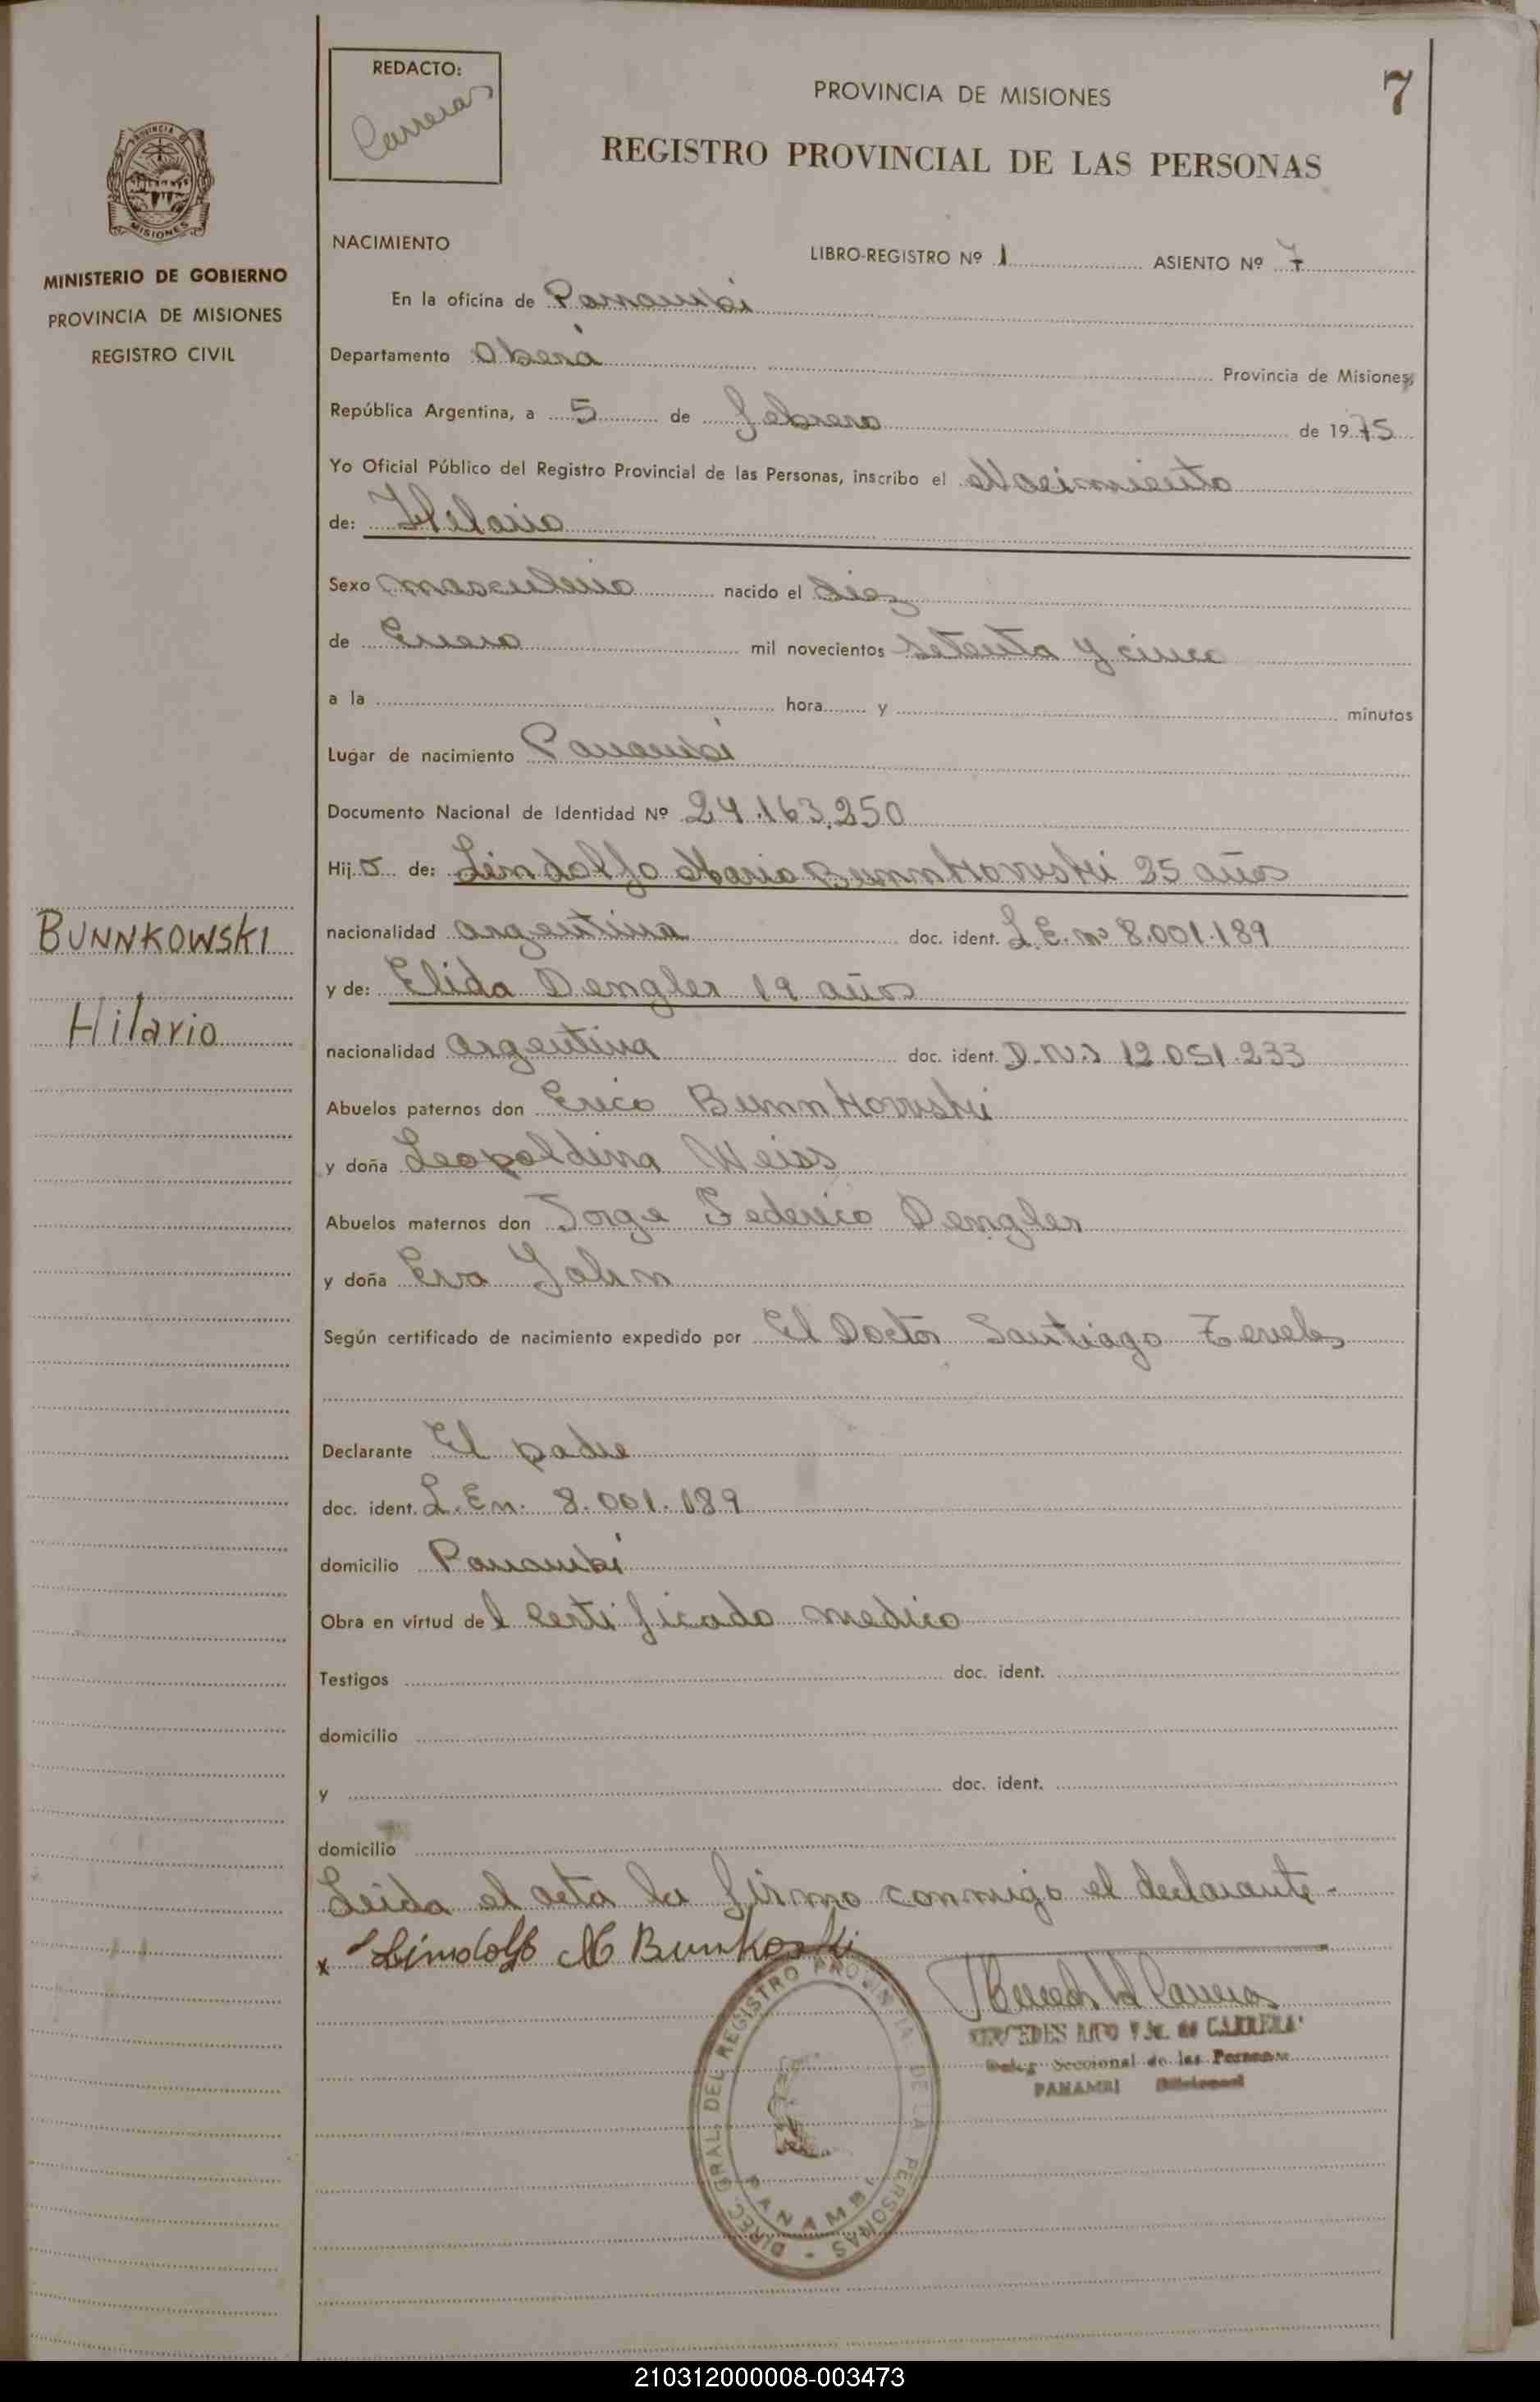 REDACTO:
Carreras
PROVINCIA DE MISIONES
7
REGISTRO PROVINCIAL DE LAS PERSONAS
PROVINCIA DE
MISIONES
MINISTERIO DE GOBIERNO
PROVINCIA DE MISIONES
REGISTRO CIVIL
NACIMIENTO
LIBRO-REGISTRO Nº 1 ASIENTO Nº 7
En la oficina de Panambi
Departamento Oberá Provincia de Misiones,
República Argentina, a 5 de febrero de 1975
Yo Oficial Público del Registro Provincial de las Personas, inscribo el Nacimiento
de: Hilario
Sexo masculino nacido el diez
de Enero mil novecientos setenta y cinco
a la hora y minutos
Lugar de nacimiento Panambi
Documento Nacional de Identidad Nº 24.163.250
Hijo de: Lindolfo Mario Bunnkowski 25 años
BUNNKOWSKI
nacionalidad argentina doc. ident. L.E. nº 8.001.189
y de: Elida Dengler 19 años
Hilario
nacionalidad argentina doc. ident. D.N.I 12.051.233
Abuelos paternos don Erico Bunnkowski
y doña Leopoldina Weiss
Abuelos maternos don Jorge Federico Dengler
y doña Eva Jahn
Según certificado de nacimiento expedido por El Doctor Santiago
Declarante El padre
doc. ident. L.E n. 8.001.189
domicilio Panambi
Obra en virtud del Certificado medico
Testigos doc. ident.
domicilio
y doc. ident.
domicilio
Leida el acta la firma conmigo el declarante-
x Lindolfo M Bunkoski
DIREC. GRAL. DEL REGISTRO PROVINCIAL DE LA PERSONAS -
PANAMBI
MERCEDES de CARRERA
Seccional de las Personas
PANAMBI Misiones
210312000008-003473